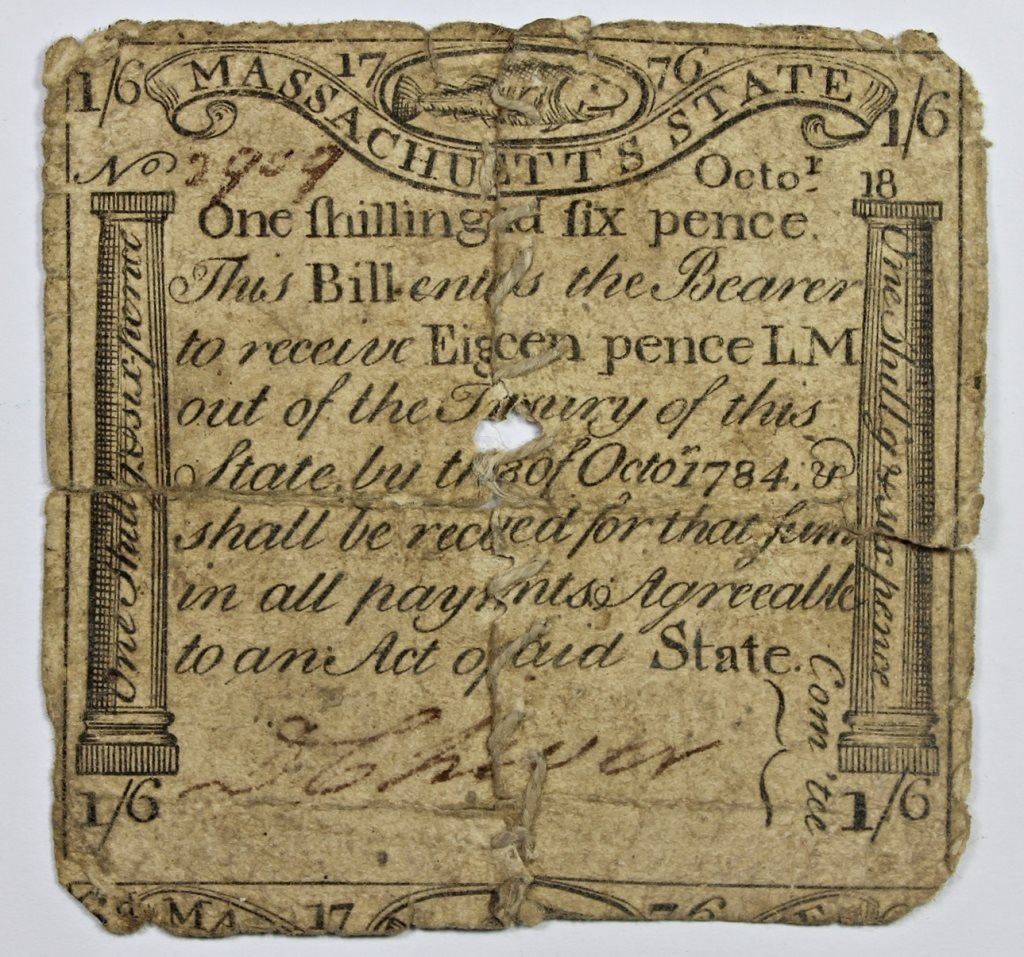 1/6 MASSACHUETTS STATE 1776 1/6
No 2909 Octo.r 18
One ſhilling d ſix pence.
This Bill entis the Bearer
to receive Eigeen pence L M
out of the Tury of this
State, by th 18 of Octor. 1784, &
shall be recved for that ſum
in all paynts Agreeable
to an Act of aid State.
One Shill & six-pence
One shillg & six pence
Com'tee
1/6 1/6
d MA 17 76